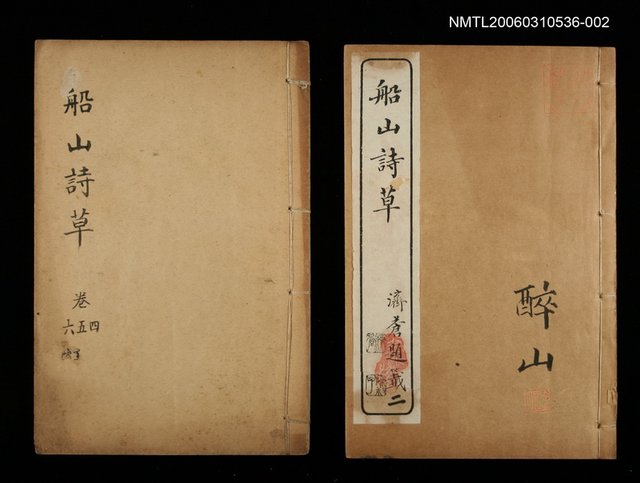 NMTL20060310536-002
船山詩草
卷
四五六
船山詩草
濟蒼題籤 二
醉山